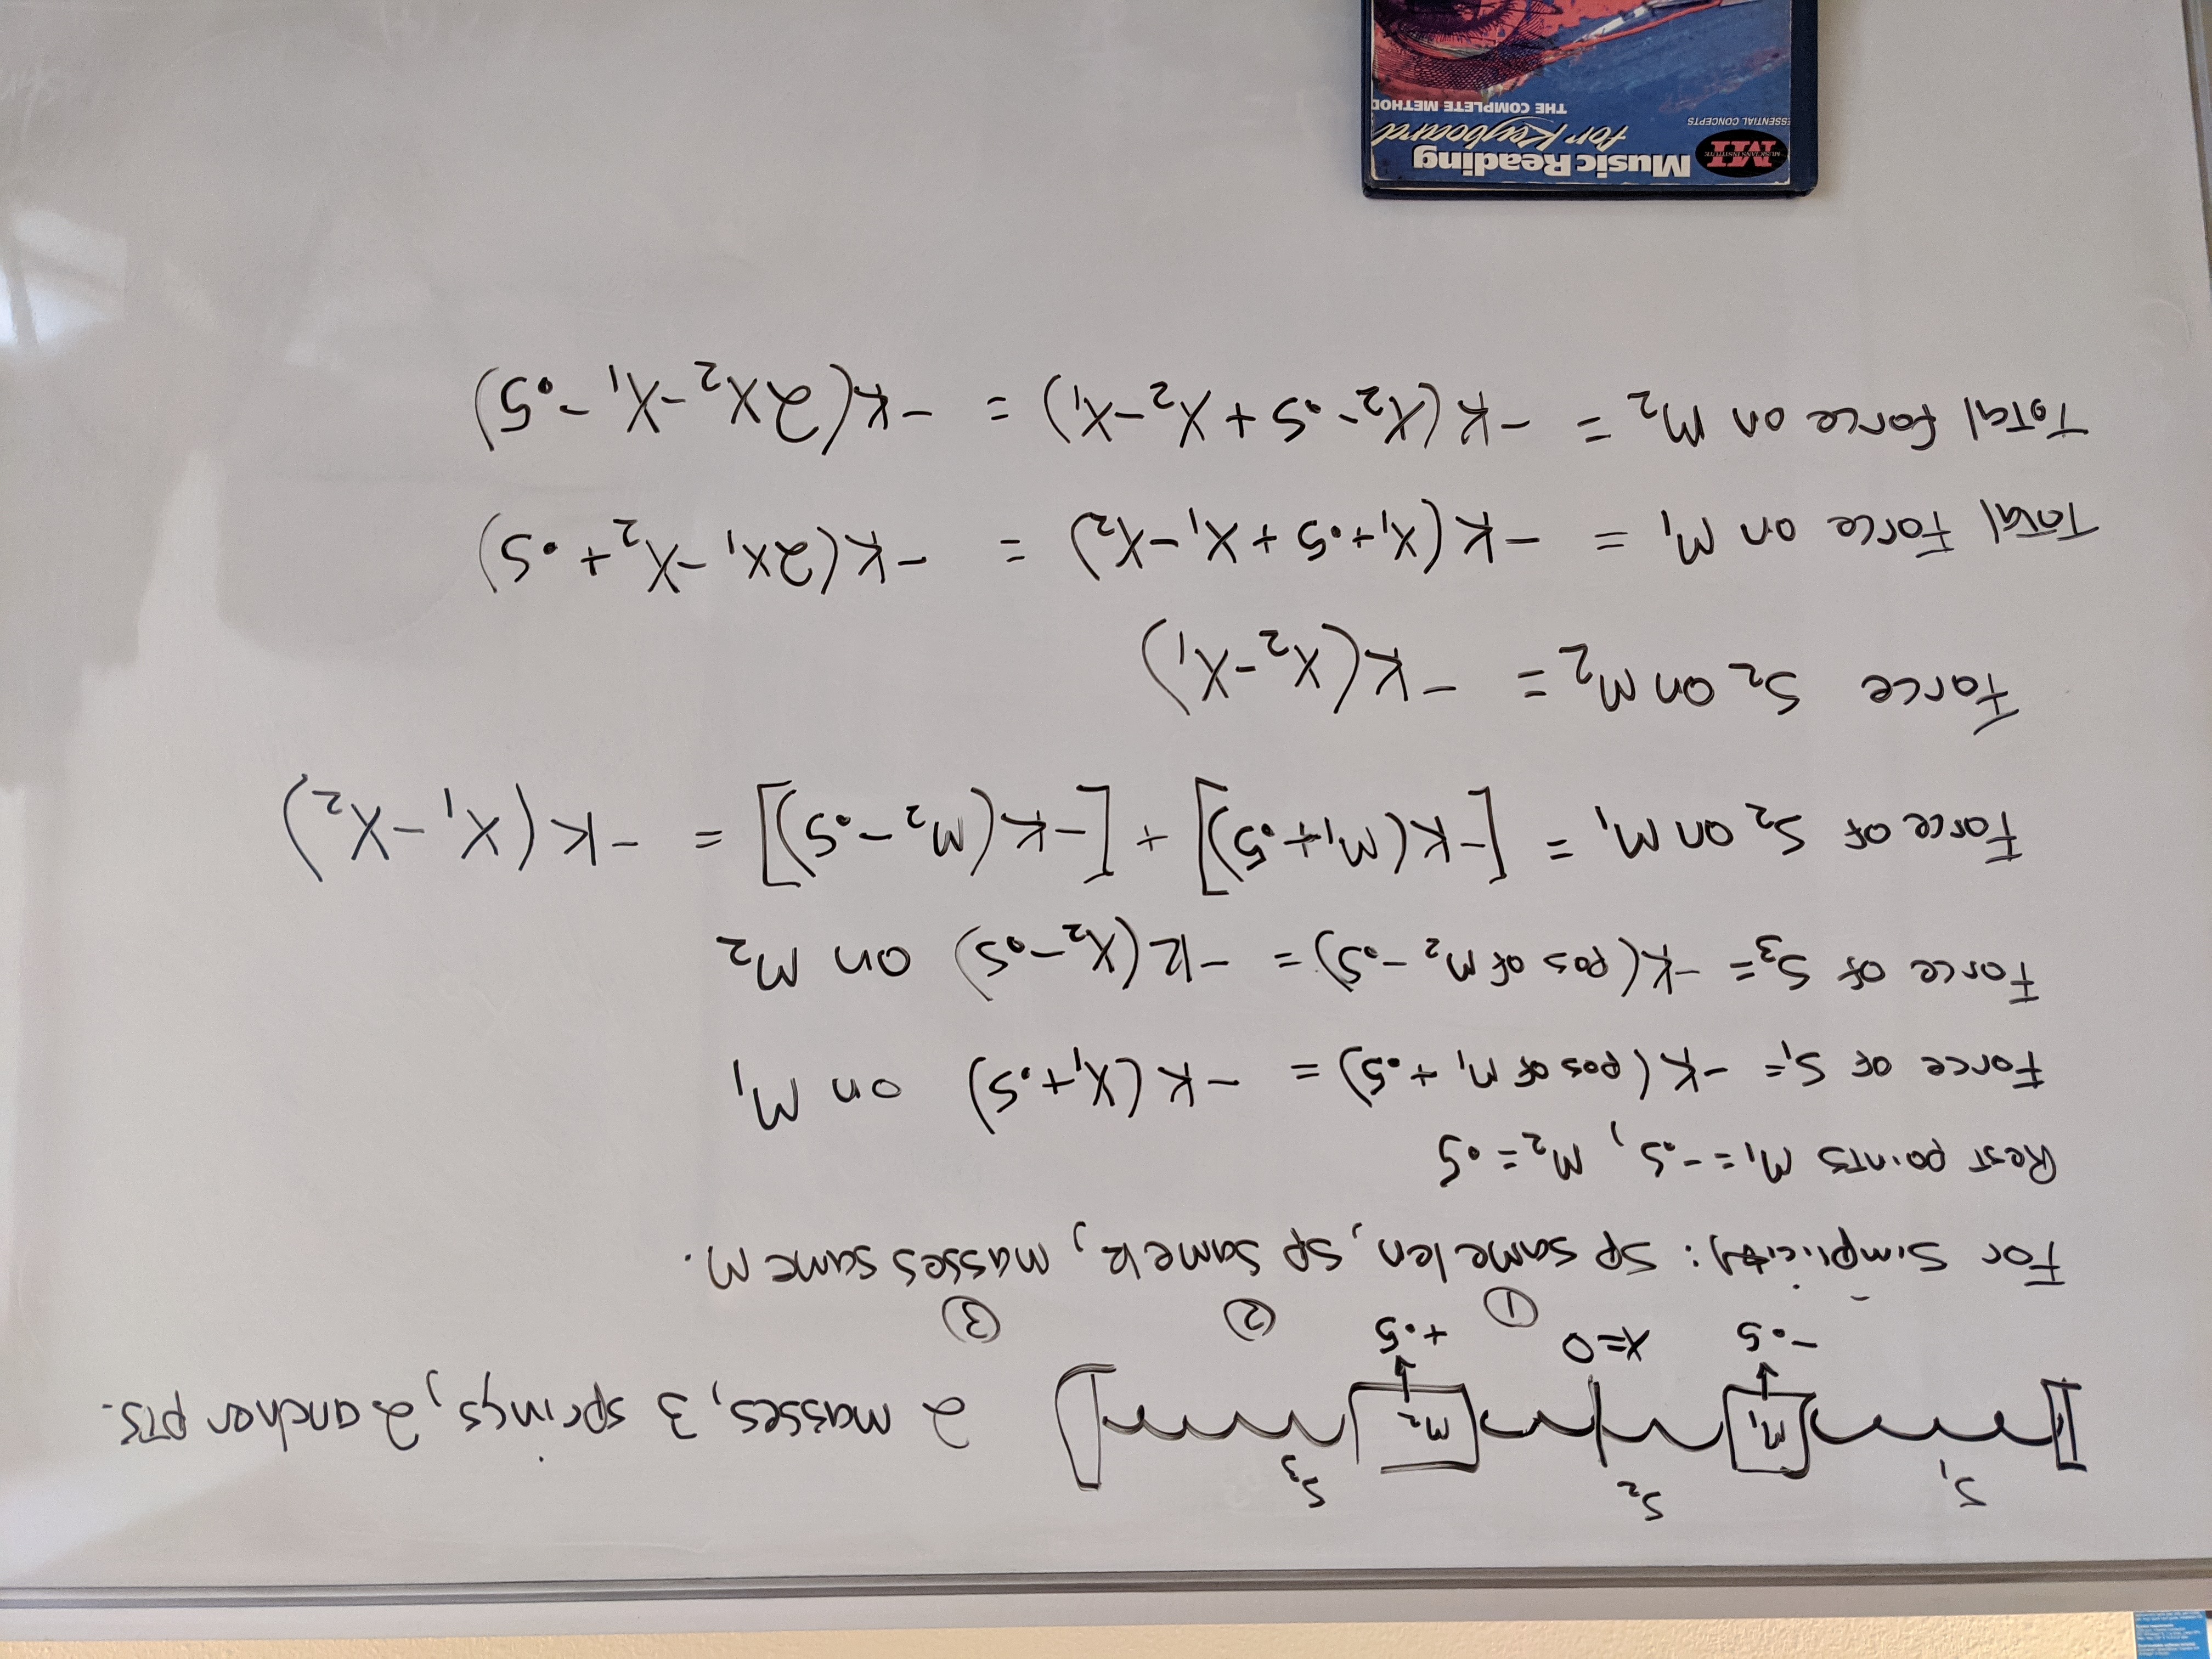 S₁ S₂ S₃
M₁ M₂ 2 masses, 3 springs, 2 ancher pTS.
-.5 X=0 +.5
① ② ③
For Simplicity: SP same len, SP Same k, masses same M.
Rest points M₁=-.5, M₂=.5
Force of S₁= -K(pos of M₁ +.5) = -K(X₁+.5) on M₁
Force of S₃= -K(pos of M₂ -.5) = -k(X₂-.5) on M₂
Force of S₂ on M₁ = [-K(M₁+.5)] + [-K(M₂-.5)] = -K(X₁-X₂)
Force S₂ on M₂ = -K(X₂-X₁)
Total Force on M₁ = -K(X₁+.5+X₁-X₂) = -K(2X₁-X₂+.5)
Total force on M₂ = -K(X₂-.5+X₂-X₁) = -K(2X₂-X₁-.5)
MI Music Reading
MUSICIANS INSTITUTE
for Keyboard
ESSENTIAL CONCEPTS
THE COMPLETE METHOD